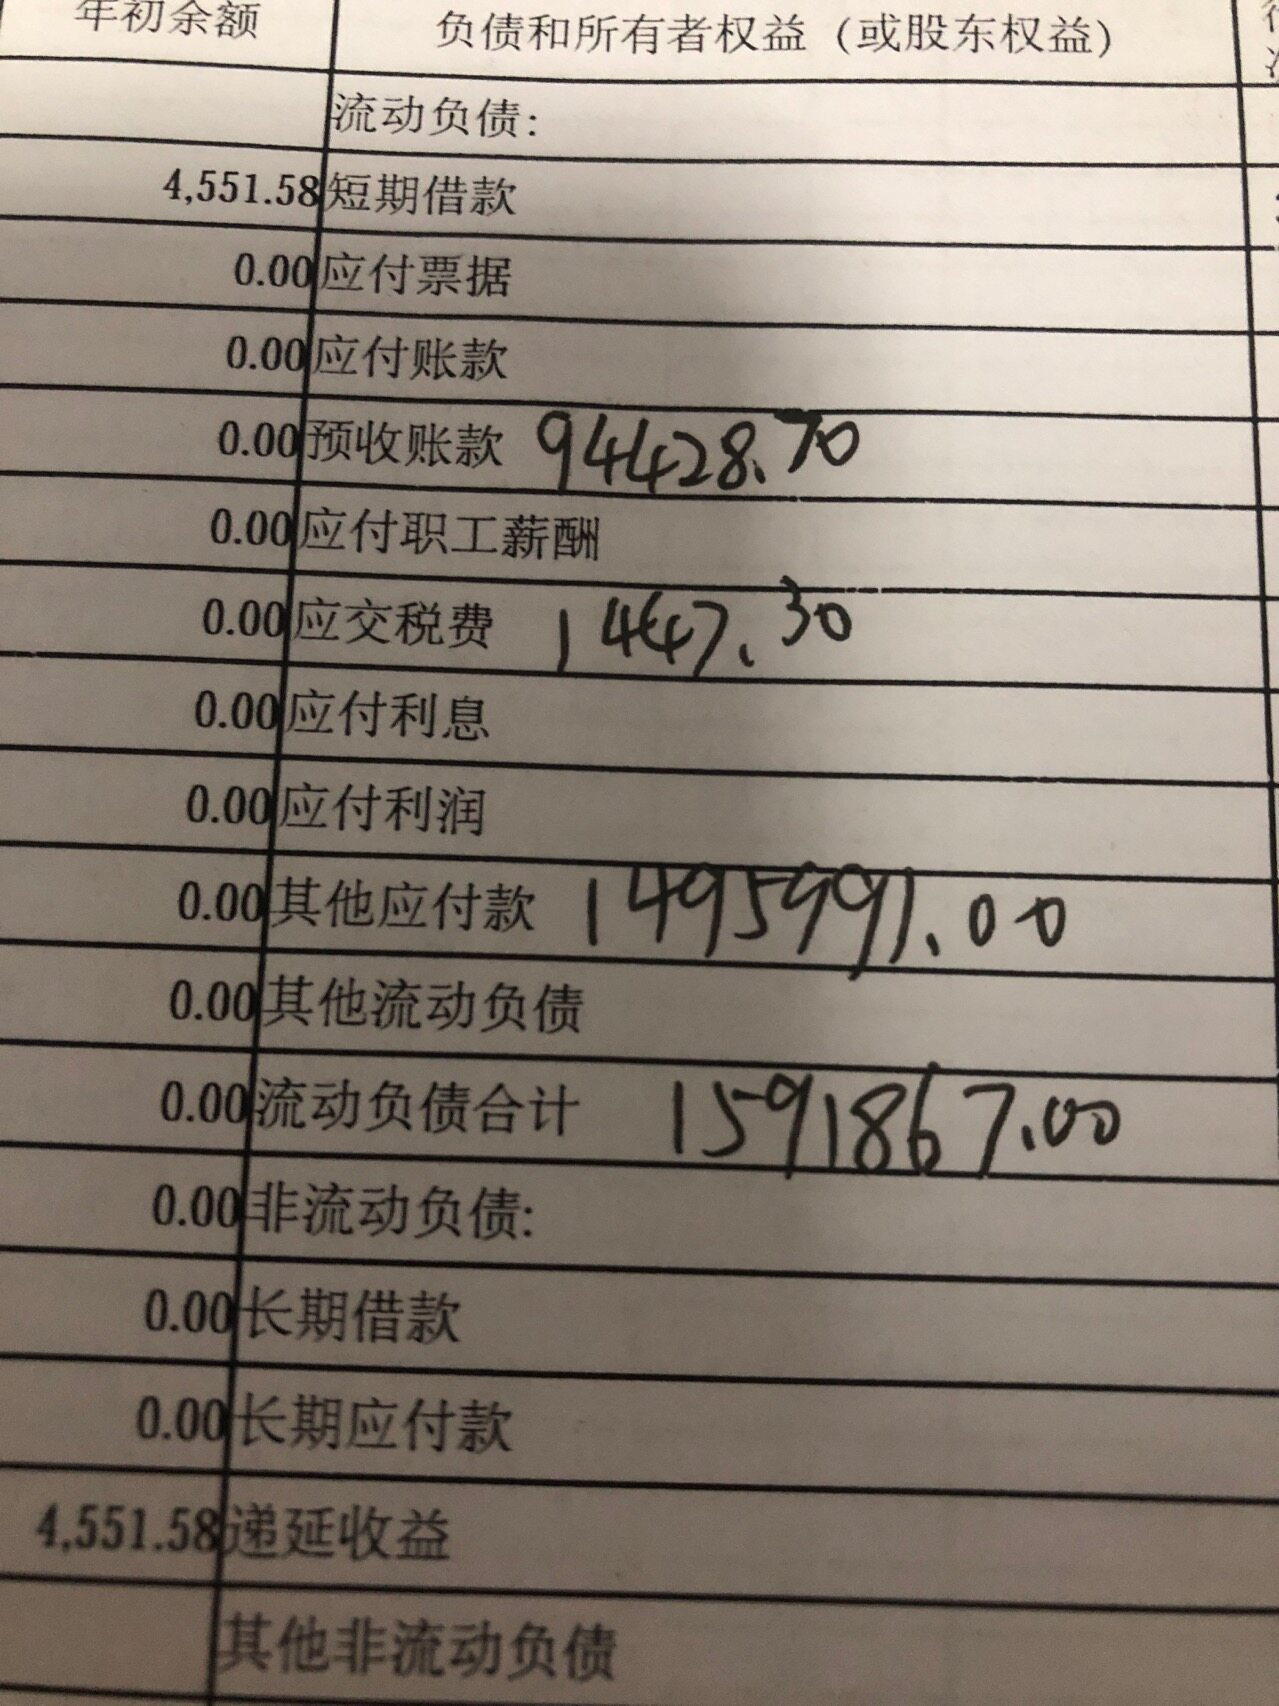 年初余额 负债和所有者权益（或股东权益）
流动负债:
4,551.58 短期借款
0.00 应付票据
0.00 应付账款
0.00 预收账款 94428.70
0.00 应付职工薪酬
0.00 应交税费 1447.30
0.00 应付利息
0.00 应付利润
0.00 其他应付款 1495991.00
0.00 其他流动负债
0.00 流动负债合计 1591867.00
0.00 非流动负债:
0.00 长期借款
0.00 长期应付款
4,551.58 递延收益
其他非流动负债